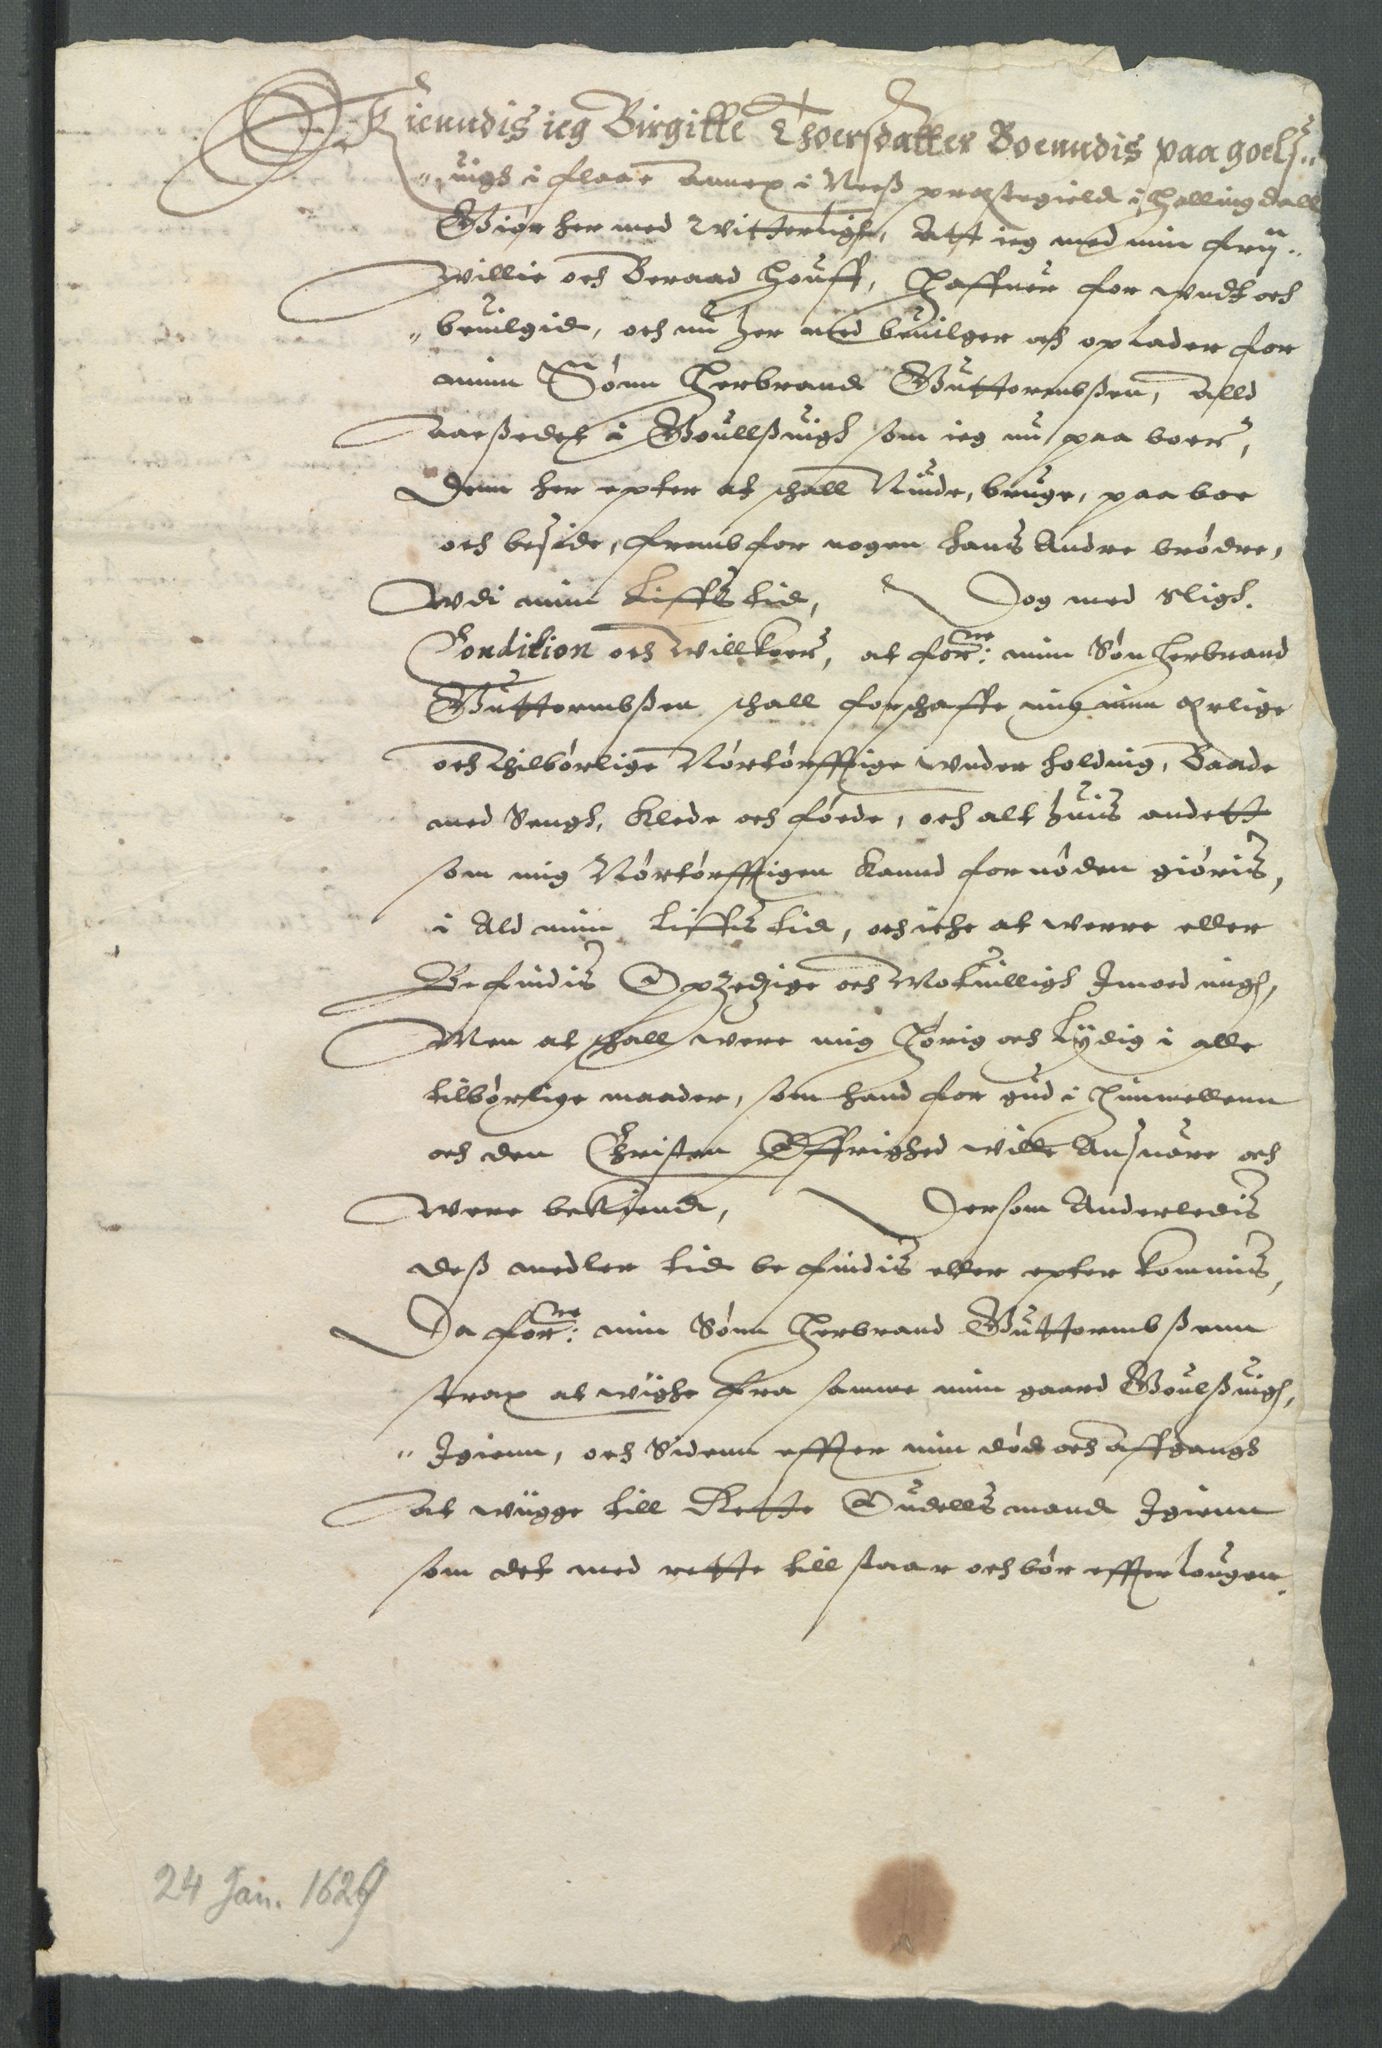 Kienndis ieg Birgitte Thoersdatter Boenndis paa goels..
„uigh i flaae annex i Neeß præstegield i Hallingdall
Giør her med witterligt, Att ieg med min frij..
willie och Beraad Houff, Haffuer for wndt och
„beuilgid, och nu her med beuilger och oplader for
minn Sønn Herbrand Guttormbßen, alld
aaeßedet i Goulßuigh som ieg nu paa boer,
Dem her epter at schall Niude, bruge, paa boe
och beside, frembfor nogen hans Andre brødre,
wdi minn Liffs tid, Dog med Sligh.
Condition och willkoer, at forne: min Søn Herbrand
Guttormbßen schall forschaffe mig min ærlige
och tilbørlige Nørtørfftige wnder holding, Baade
med Sengh, Klede och føede, och alt huis andett
som mig Nørtørfftigen kannd fornøden giøris,
i Ald minn Liffs tid, och iche at werre eller
Befindis Opzedzige och Motuilligh Imoed migh,
Men at schall were mig Hørig och Lydig i alle
tilbørlige maader, som hand for gud i Himmellenn
och den Christen Øffrighed wille Ansuare och
were bekiendt, Dersom Anderledis
deß medler tid befindis eller epter kommis,
Da forne: min Sønn Herbrand Guttormbßenn
strax at wighe fra samme min gaard Goulßuigh,
„Igienn, och Sidenn effter min død och affgangh
at wigge till Rette Oudells mand Igienn
som det med rette till staar och bør effter lougen.
24 Jan. 1629